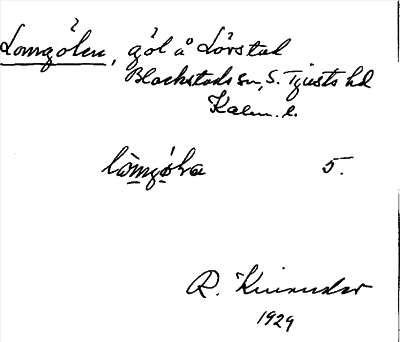 Lomgölen, göl å Lörstad
Blackstads sn, S. Tjusts hd
Kalm. l.
lòmgö́ka 5.
R. Kinander
1929